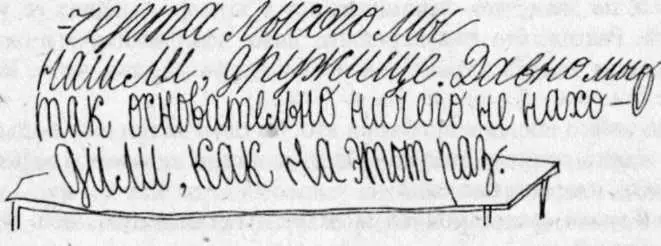 Черта лысого мы
нашли, дружище. Давно мы
так основательно ничего не нахо-
дили как на этот раз.